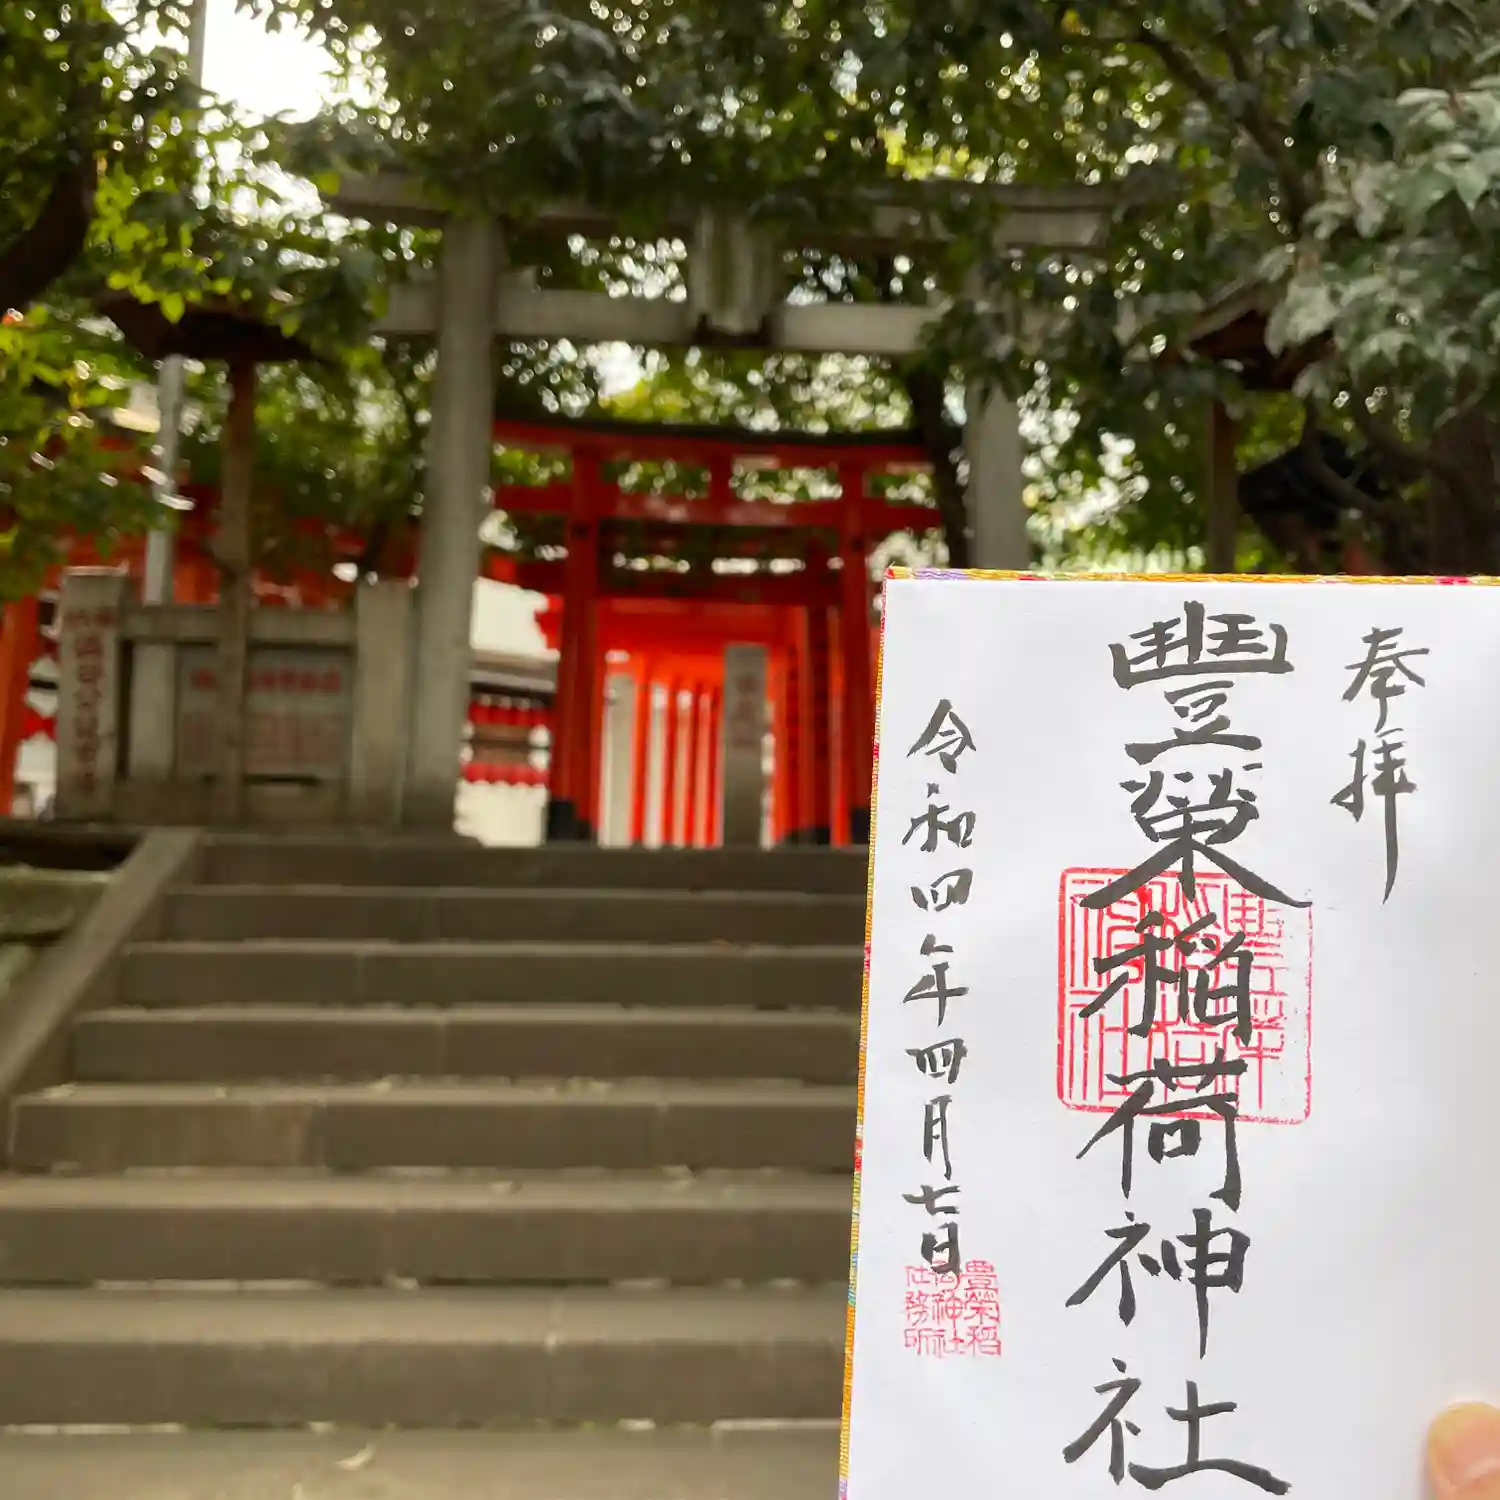 奉拝
豐榮稲荷神社
令和四年四月七日
豊榮稲
荷神社
社務所